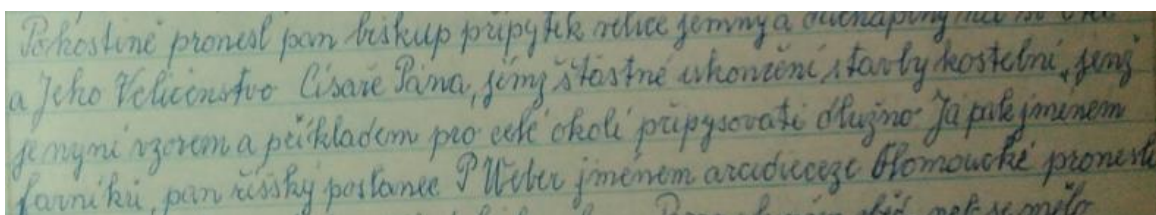 Po hostině pronesl pan biskup přípytek velice jemný a
a Jeho Veličenstvo Císaře Pána, jímž šťastné ukončení stavby kostelní, jenž
je nyní vzorem a příkladem pro celé okolí připysovati dlužno. Já pak jménem
farníků, pan říšský poslanec P Weber jménem arcidieceze Olomoucké pronesli